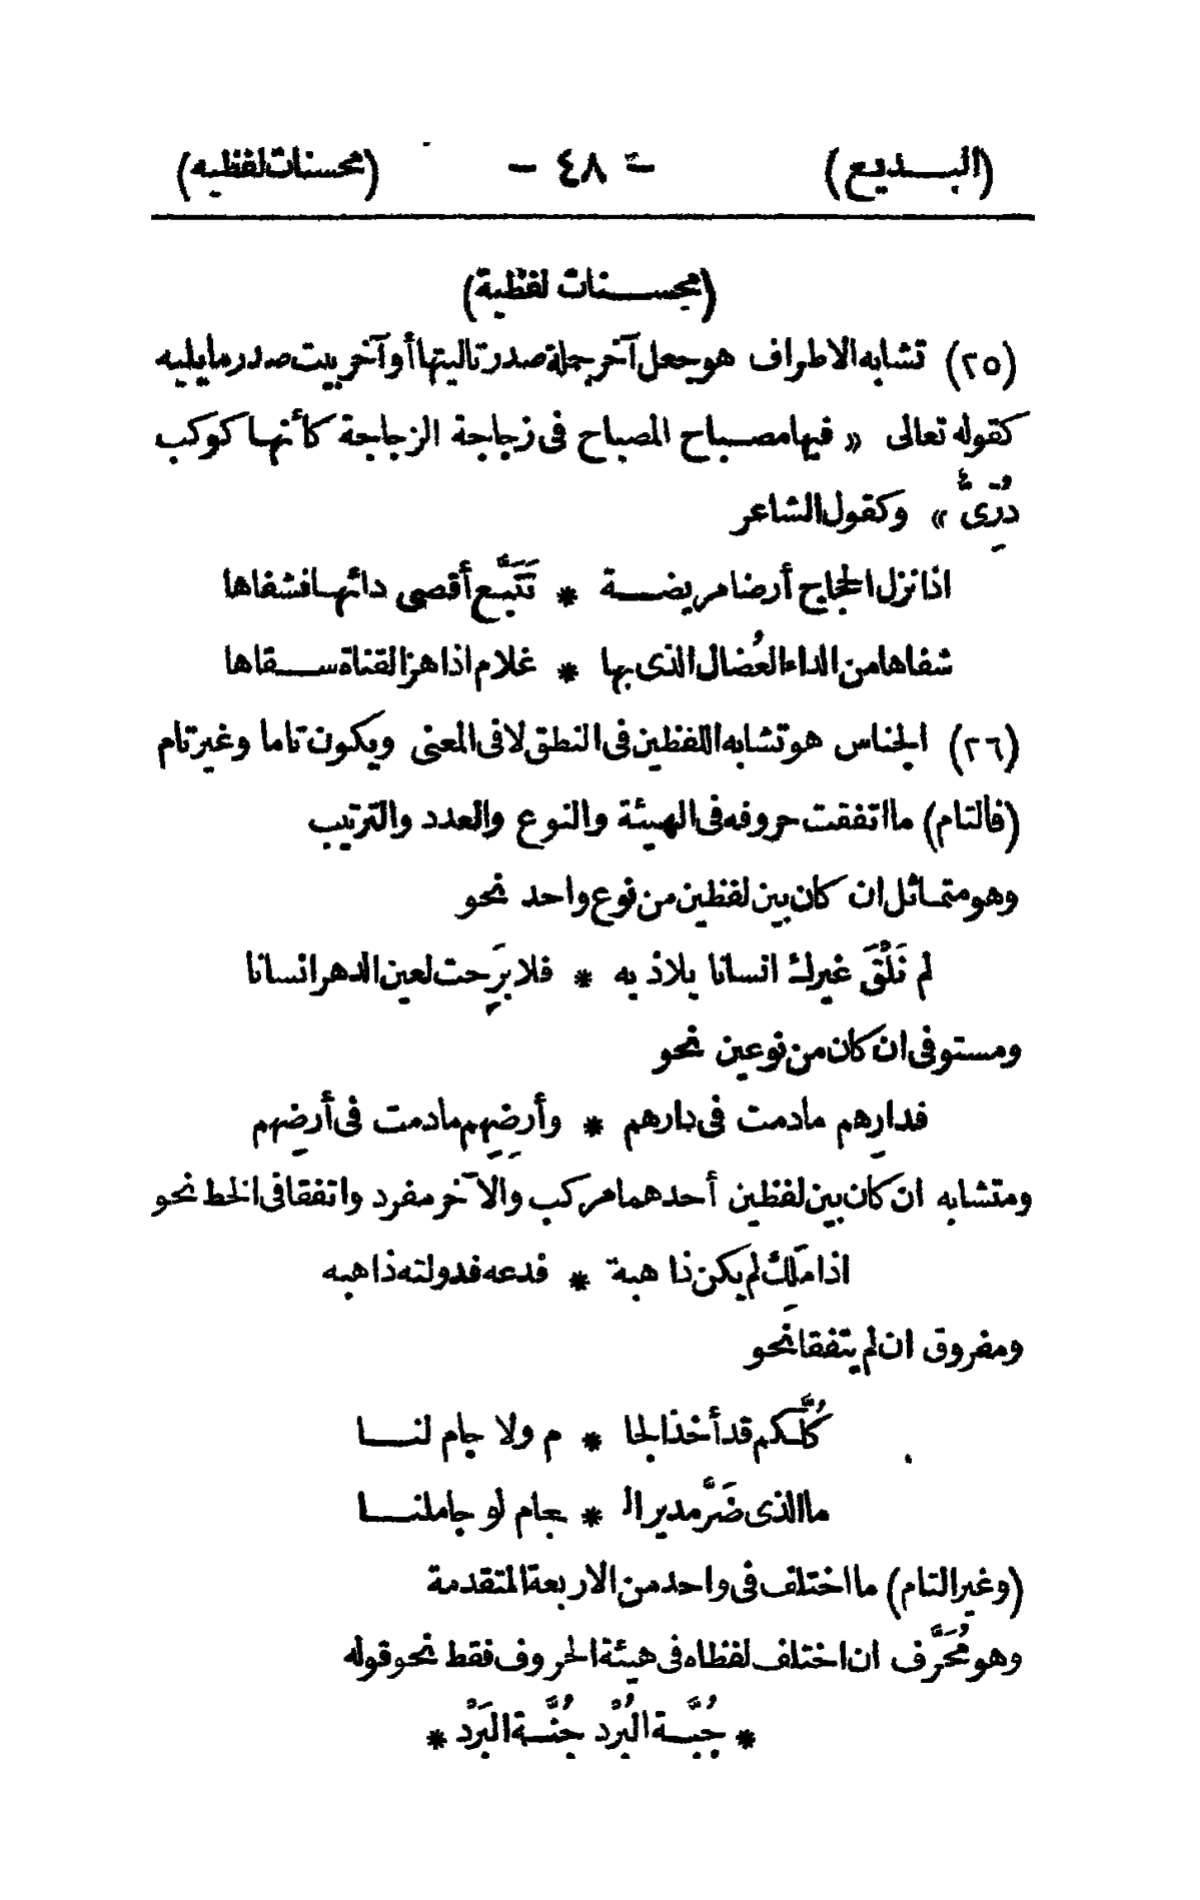 (البديع) - ٤٨ - (محسنات لفظيه)
(محسنات لفظية)
(٢٥) تشابه الاطراف هو جعل آخر جملة صدر تاليتها أو آخر بيت صدر ما يليه
كقوله تعالى « فيها مصباح المصباح فى زجاجة الزجاجة كأنها كوكب
دُرِّىٌّ » وكقول الشاعر
اذا نزل الحجاج أرضا مريضة * تَتَبَّع أقصى دائها فشفاها
شفاها من الداء العُضال الذى بها * غلام اذا هز القناة سقاها
(٢٦) الجناس هو تشابه اللفظين فى النطق لا فى المعنى ويكون تاما وغير تام
(فالتام) ما اتفقت حروفه فى الهيئة والنوع والعدد والترتيب
وهو متماثل ان كان بين لفظين من نوع واحد نحو
لم نَلْقَ غيرك انسانا يلاذ به * فلا بَرِحت لعين الدهر انسانا
ومستوفى ان كان من نوعين نحو
فدارِهم مادمت فى دارهم * وأرضِهِم مادمت فى أرضِهم
ومتشابه ان كان بين لفظين أحدهما مركب والآخر مفرد واتفقا فى الخط نحو
اذا مَلِك لم يكن ذا هبة * فدعه فدولته ذاهبه
ومفروق ان لم يتفقا نَحو
كُلُّكم قد أخذ الجا * م ولا جام لنا
ما الذى ضَرَّ مدير الـ * جام لو جاملنا
(وغير التام) ما اختلف فى واحد من الاربعة المتقدمة
وهو مُحَرَّف ان اختلف لفظاه فى هيئة الحروف فقط نحو قوله
* جُبَّة البُرْد جُنَّة البَرْد *